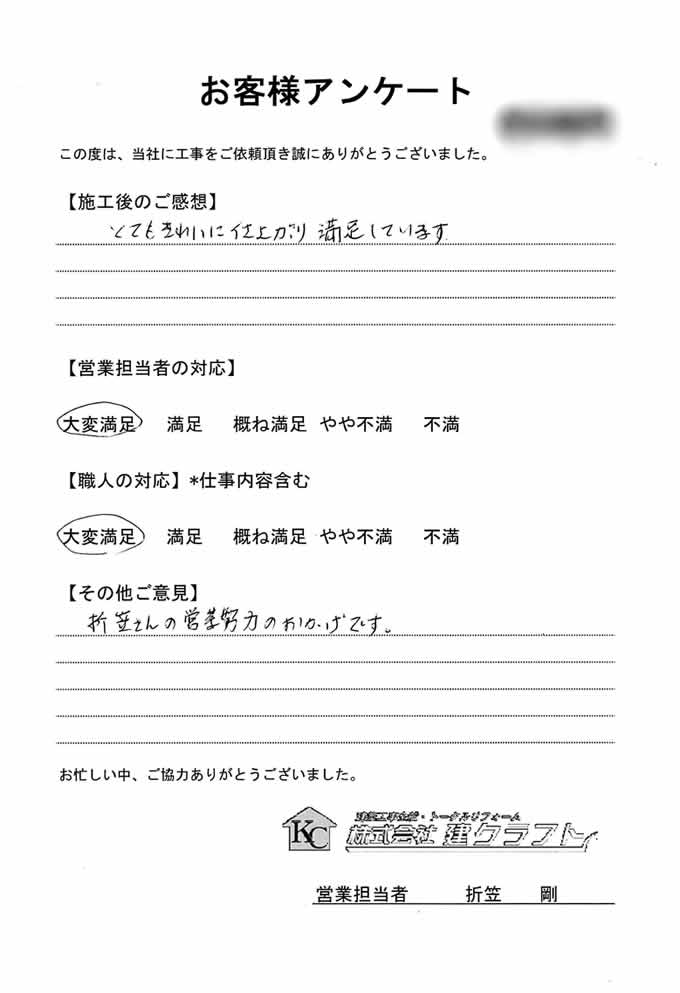 お客様アンケート
この度は、当社に工事をご依頼頂き誠にありがとうございました。
【施工後のご感想】
とてもきれいに仕上がり 満足しています
【営業担当者の対応】
大変満足 満足 概ね満足 やや不満 不満
【職人の対応】*仕事内容含む
大変満足 満足 概ね満足 やや不満 不満
【その他ご意見】
折笠さんの営業努力のおかげです。
お忙しい中、ご協力ありがとうございました。
KC
建築工事全般・トータルリフォーム
株式会社 建クラフト
営業担当者 折笠 剛